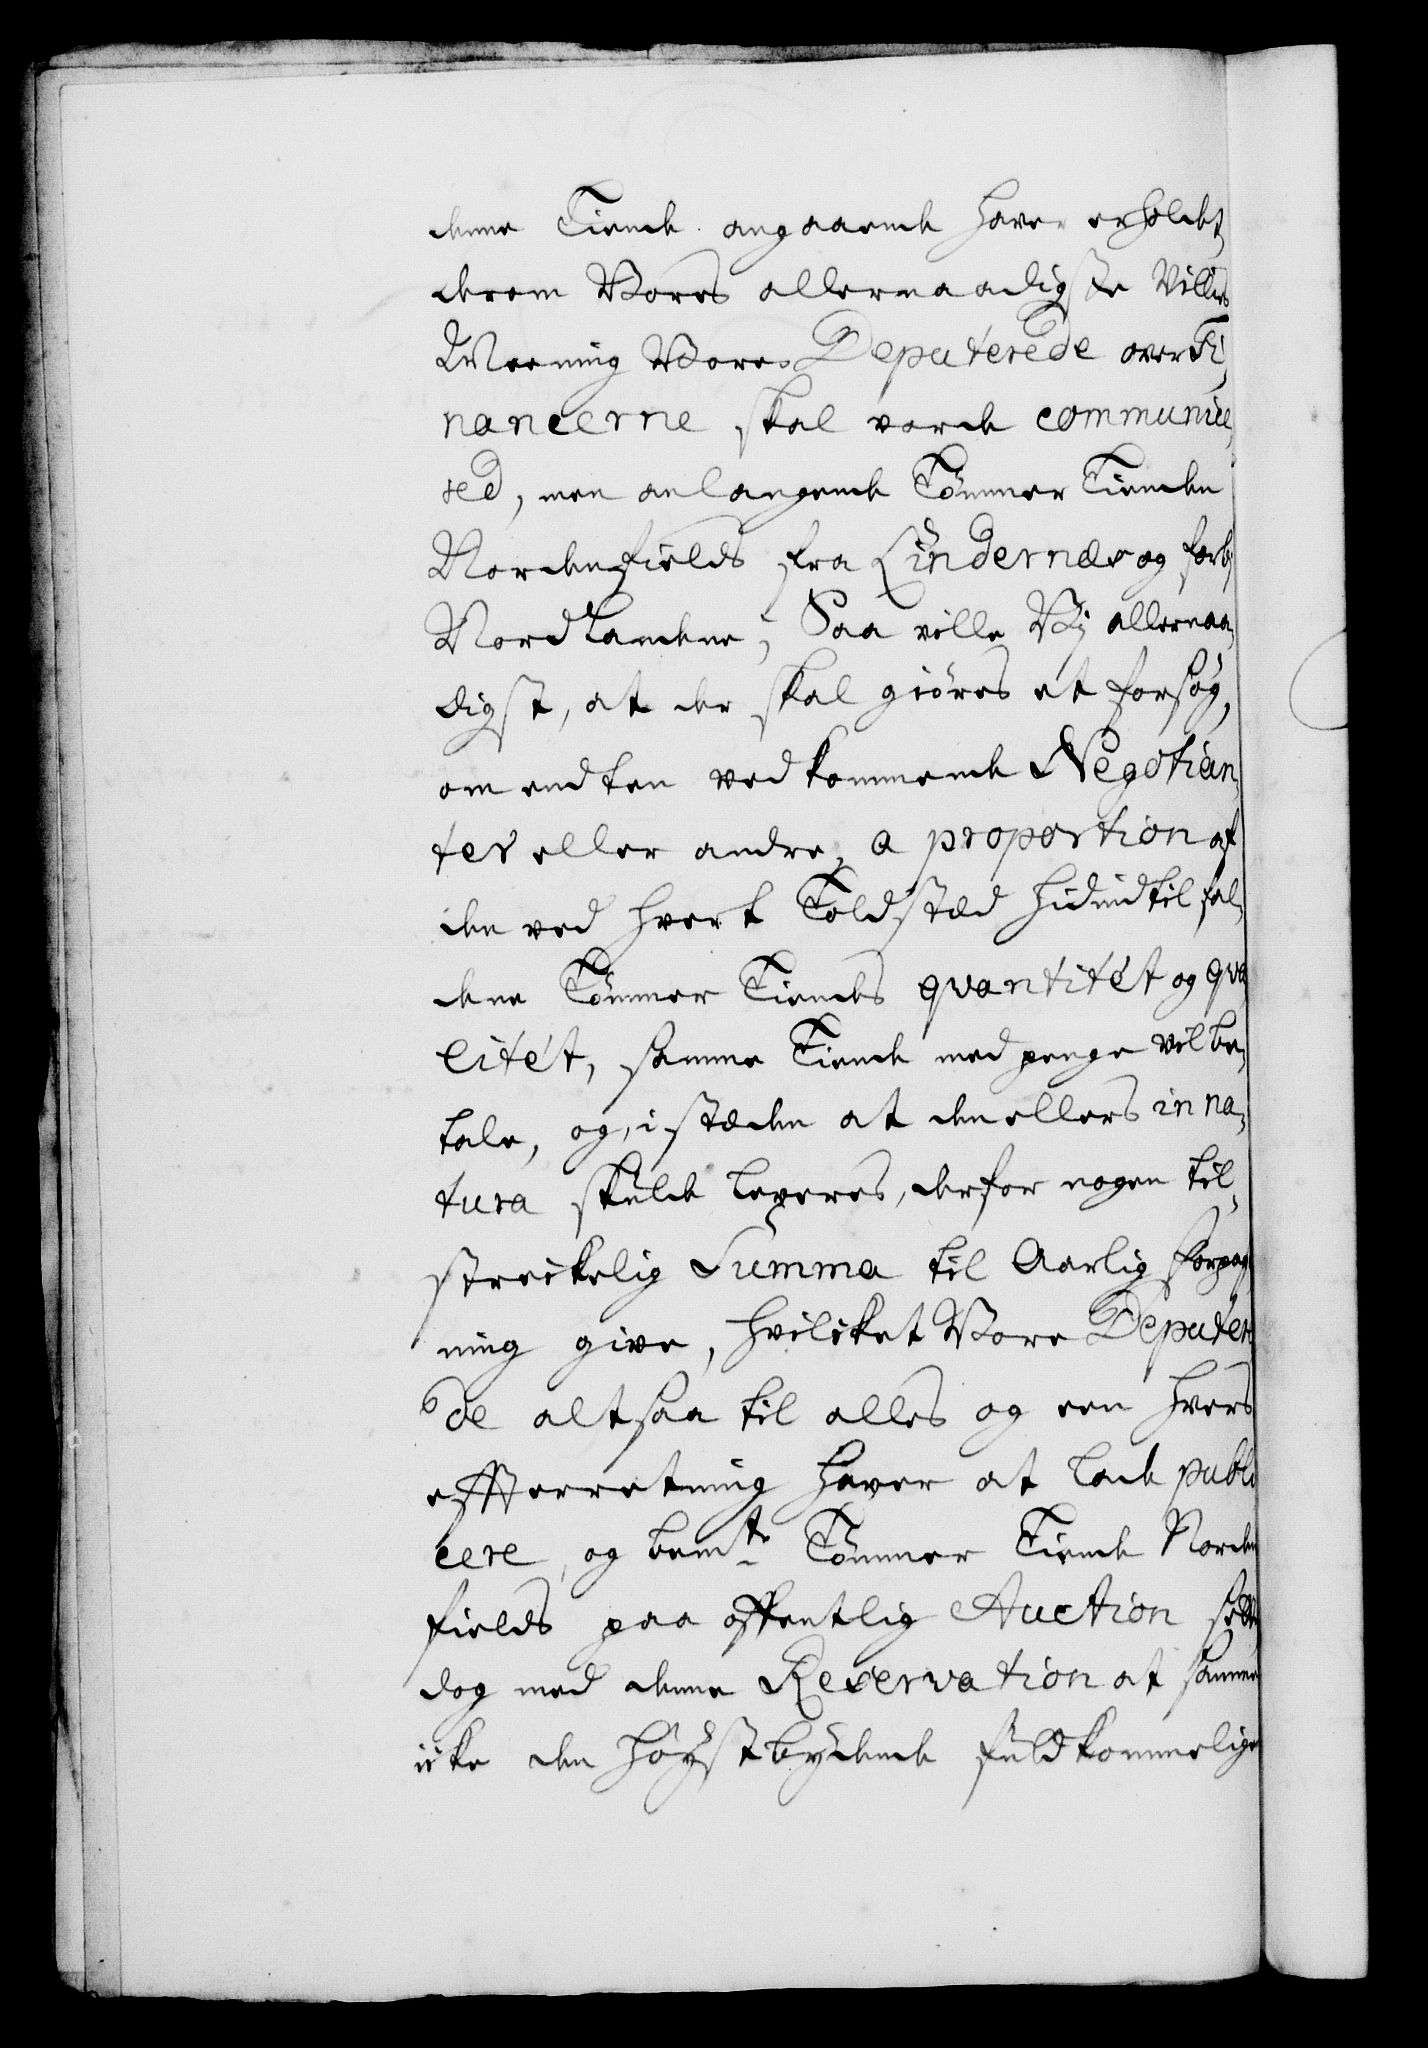 denne Tiende angaaende haver erholdet,
derom Vores allernaadigste Villies
Meening Vores Deputerede over Fi,
nancerne skal vorde communice,
red, men anlangende Tømmer Tienden
Nordenfields fra Lindernæs og forbj
Nordlandene; Saa ville Vj allernaa,
digst, at der skal giöres et forsøg,
om endten vedkommende Negotian,
ter eller andre, a proportion af
den ved hvert Toldstæd hidindtil fal,
dene Tømmer Tiendes qvantitét og qva
litét, samme Tiende med penge vil be,
tale, og, i stæden at den ellers in na,
tura skulde leveres, derfor nogen til,
streckelig Summa til Aarlig forpag
ning give, hvilcket Vore Deputere
de altsaa til alles og een hvers
efterretning haver at lade publi
cere, og bemte Tømmer Tiende Norden
fields paa offentlig Auction sette
dog med denne Reservation at samme
icke den høystbydende fuldkommelige